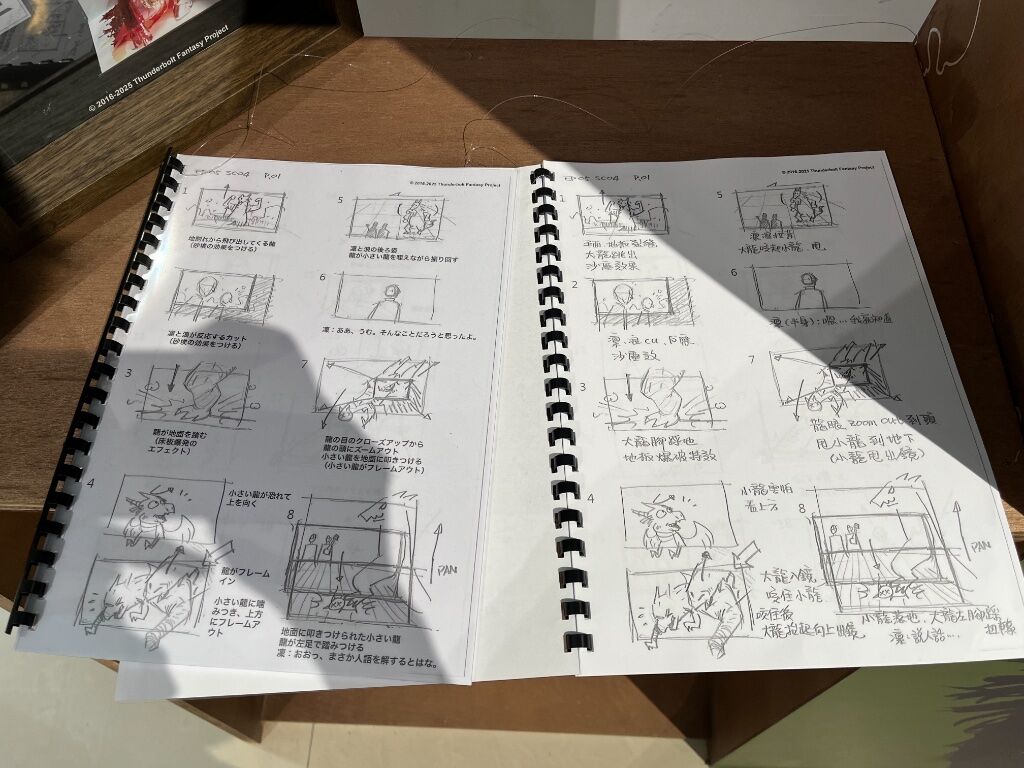 © 2016-2025 Thunderbolt Fantasy Project
EP.05 SC04 P.01
© 2016-2025 Thunderbolt Fantasy Project
1
地割れから飛び出してくる龍
(砂埃の効果をつける)
凜と浪が反応するカット
(砂埃の効果をつける)
3
龍が地面を踏む
(床板爆発の
エフェクト)
4
小さい龍が恐れて
上を向く
龍がフレーム
イン
小さい龍に噛
みつき、上方
にフレームア
ウト
5
凜と浪の後ろ姿
龍が小さい龍を咥えながら振り回す
6
凜:ああ、うむ。そんなことだろうと思ったよ。
7
龍の目のクローズアップから
龍の頭にズームアウト
小さい龍を地面に叩きつける
(小さい龍がフレームアウト)
8
PAN
地面に叩きつけられた小さい龍
龍が左足で踏みつける
凜:おおっ、まさか人語を解するとはな。
EP.05 SC04 P.01
© 2016-2025 Thunderbolt Fantasy Project
1
大龍跳出
沙塵效果
2
凜、浪 CU,反應
沙塵效
3
大龍腳踩地
地板爆破特效
4
小龍害怕
看上方
大龍入鏡
咬住小龍
咬住後
大龍抬起向上出鏡
5
大龍咬起小龍,甩
6
凜(半身):嗯...我就知道
7
龍眼 zoom out 到頭
甩小龍到地下
(小龍甩出鏡)
8
PAN
小龍落地,大龍左腳踩
凜:說人話...